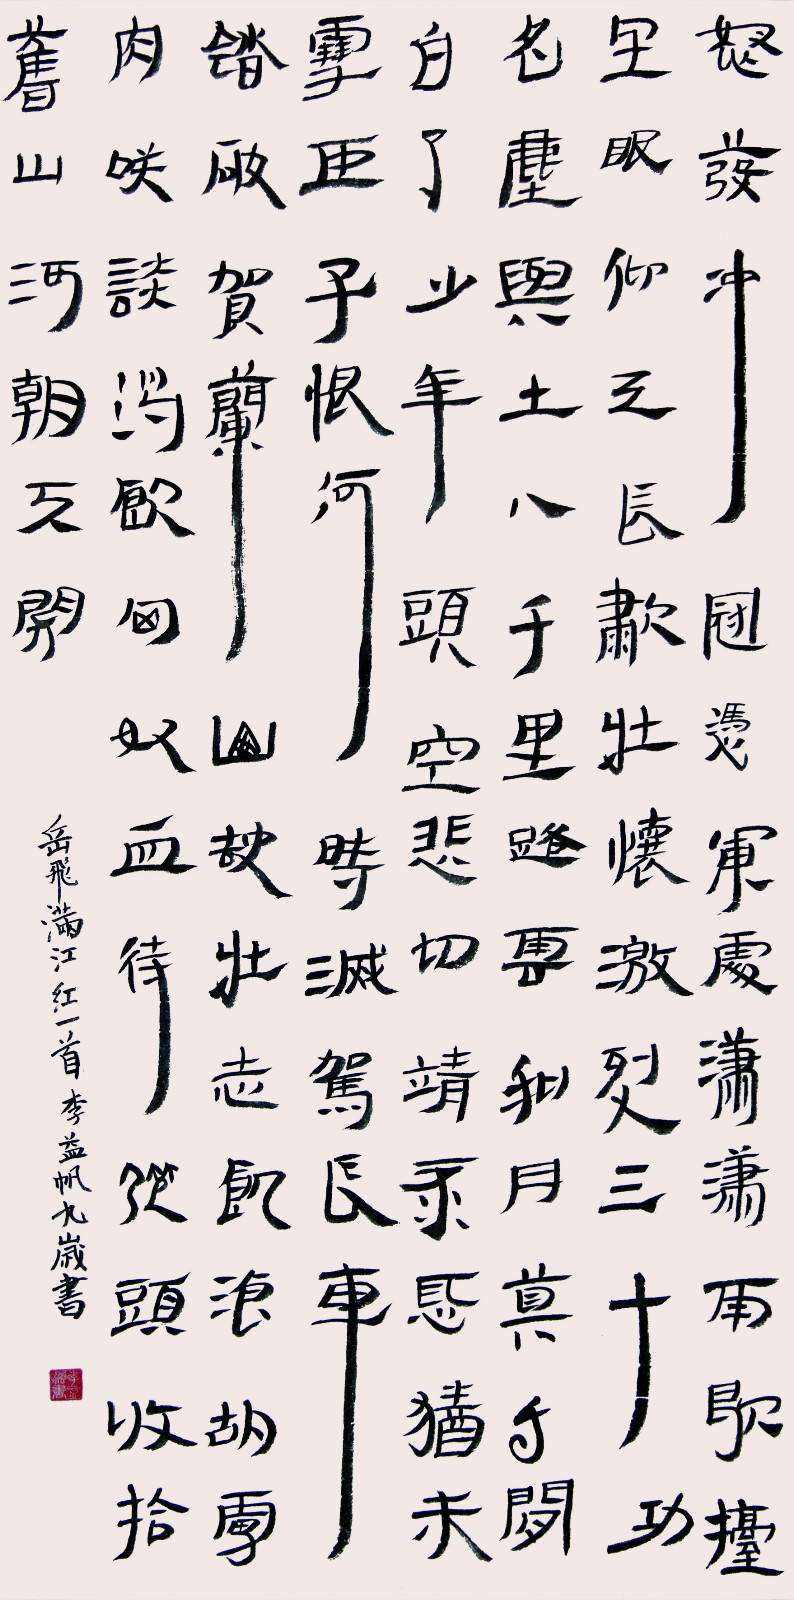 怒發冲冠憑軍處瀟瀟雨歇擡
望眼仰天長歗壯懷激烈三十功
名塵與土八千里路雲和月莫等閒
白了少年頭空悲切靖康恥猶未
雪臣子恨何時滅駕長車
踏破賀蘭山缺壯志飢湌胡虜
肉咲談渴飲匈奴血待從頭收拾
舊山河朝天開
岳飛滿江紅一首李益帆九歲書